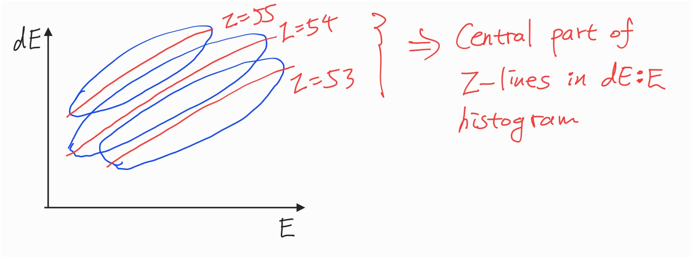 dE
Z=55
Z=54
Z=53
⇒ Central part of
Z-lines in dE:E
histogram
E